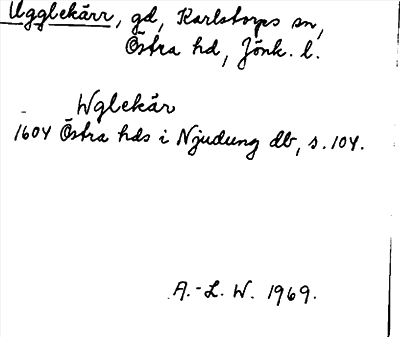 Ugglekärr, gd, Karlstorps sn,
Östra hd, Jönk. l.
Wglekär
1604 Östra hds i Njudung db, s. 104.
A.-L. W. 1969.